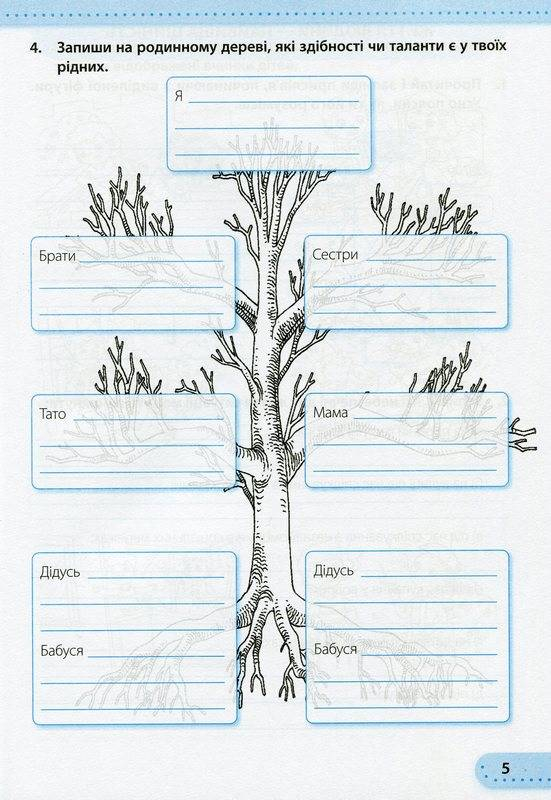 4. Запиши на родинному дереві, які здібності чи таланти є у твоїх
рідних.
Я
Брати
Сестри
Тато
Мама
Дідусь
Дідусь
Бабуся
Бабуся
5